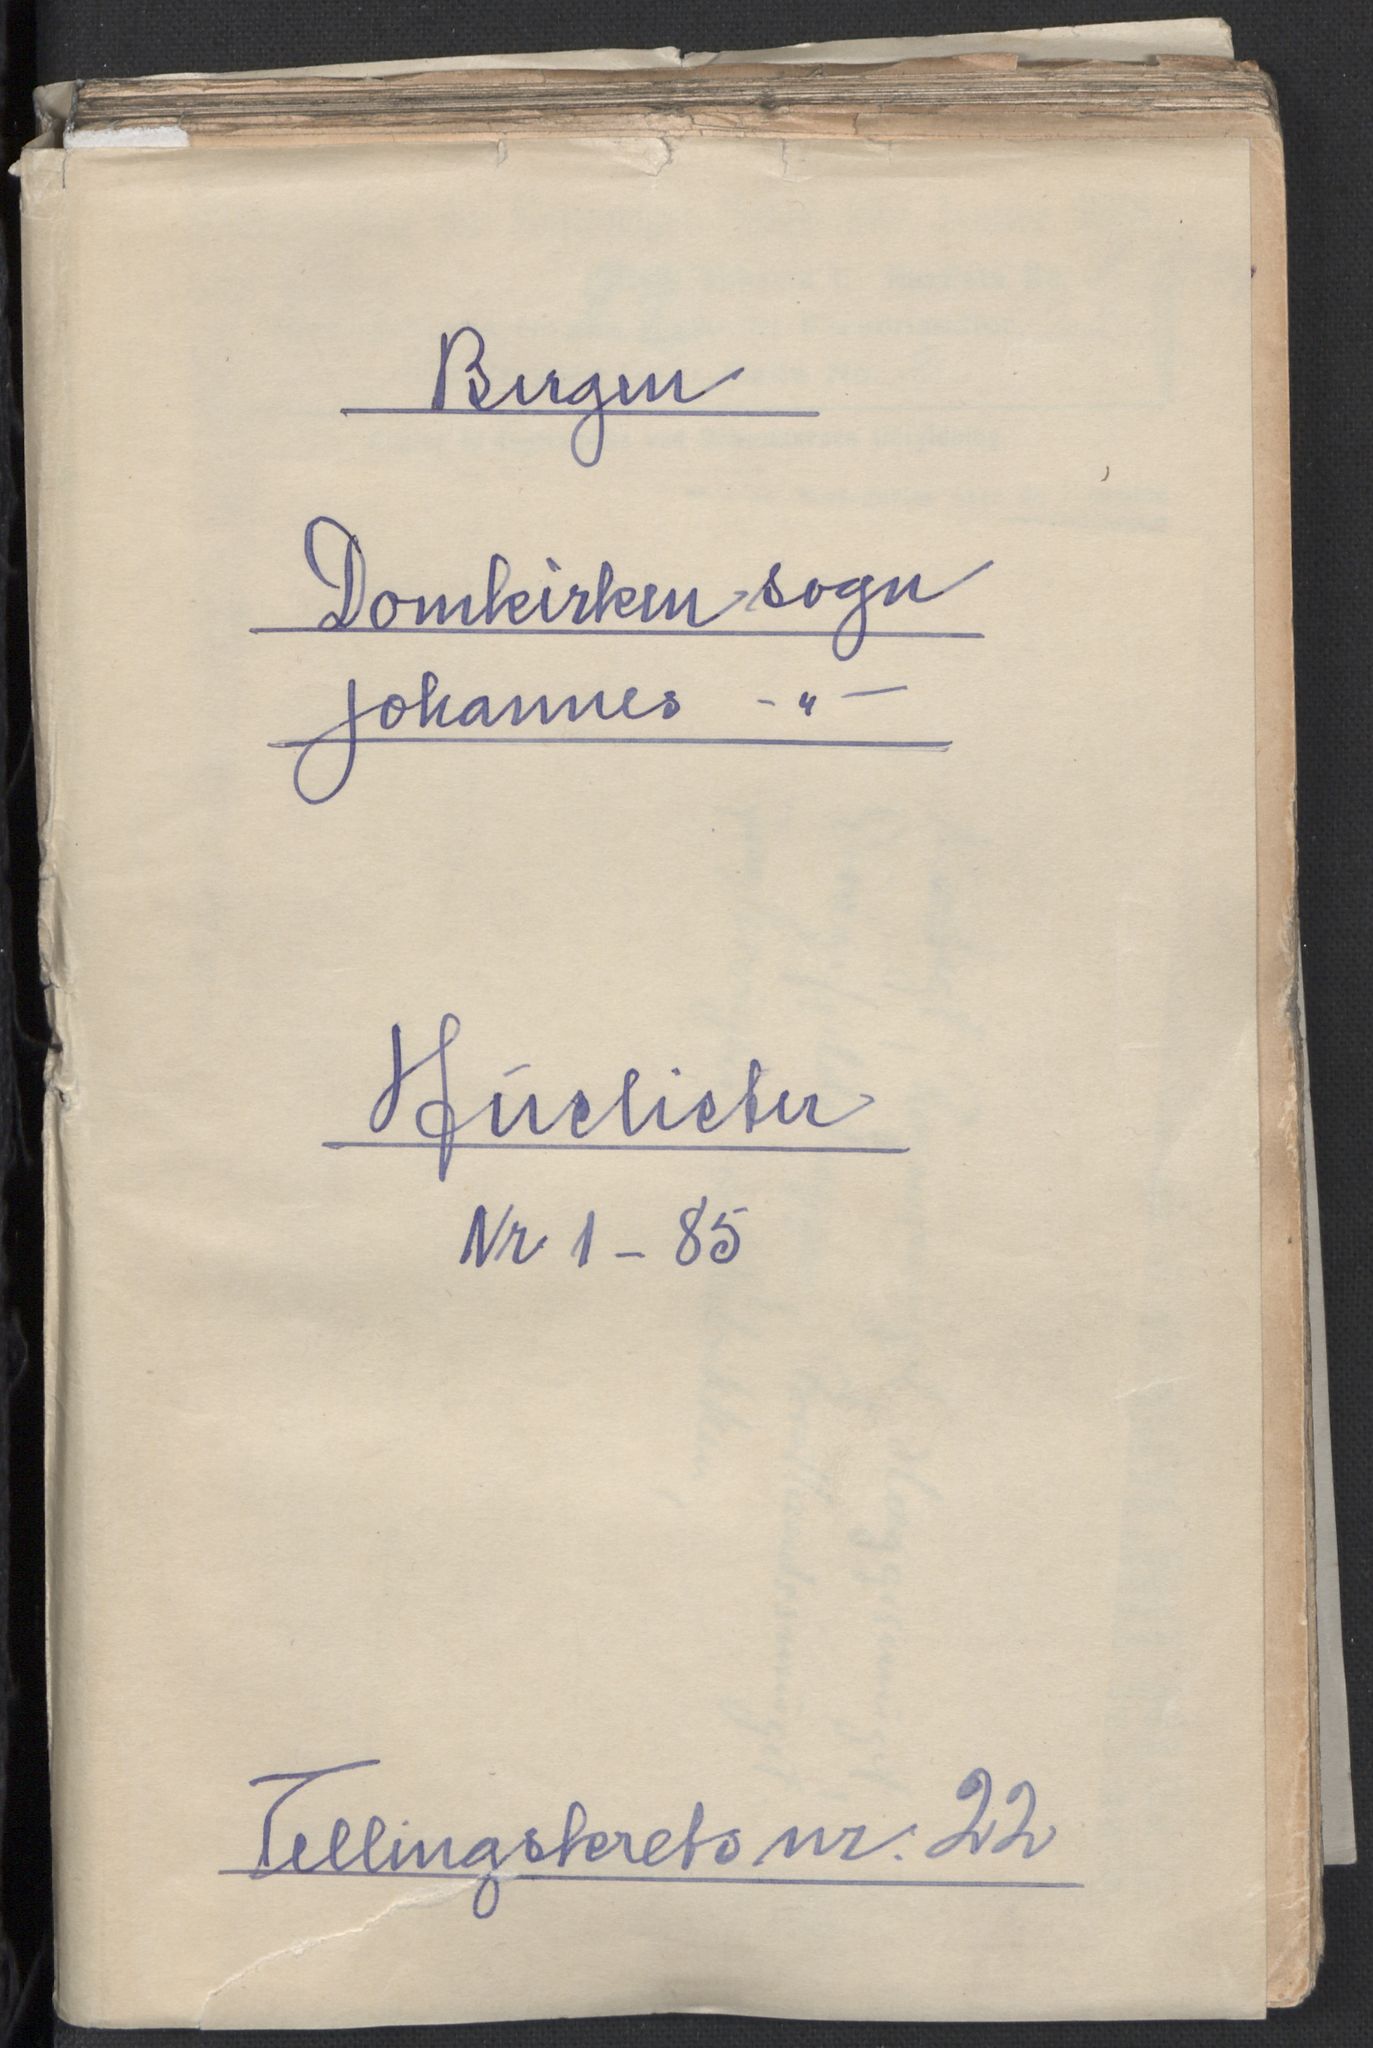 Bergen
Domkirken sogn
Johannes -"-
Huslister
Nr. 1 - 85
Tellingskrets nr. 22